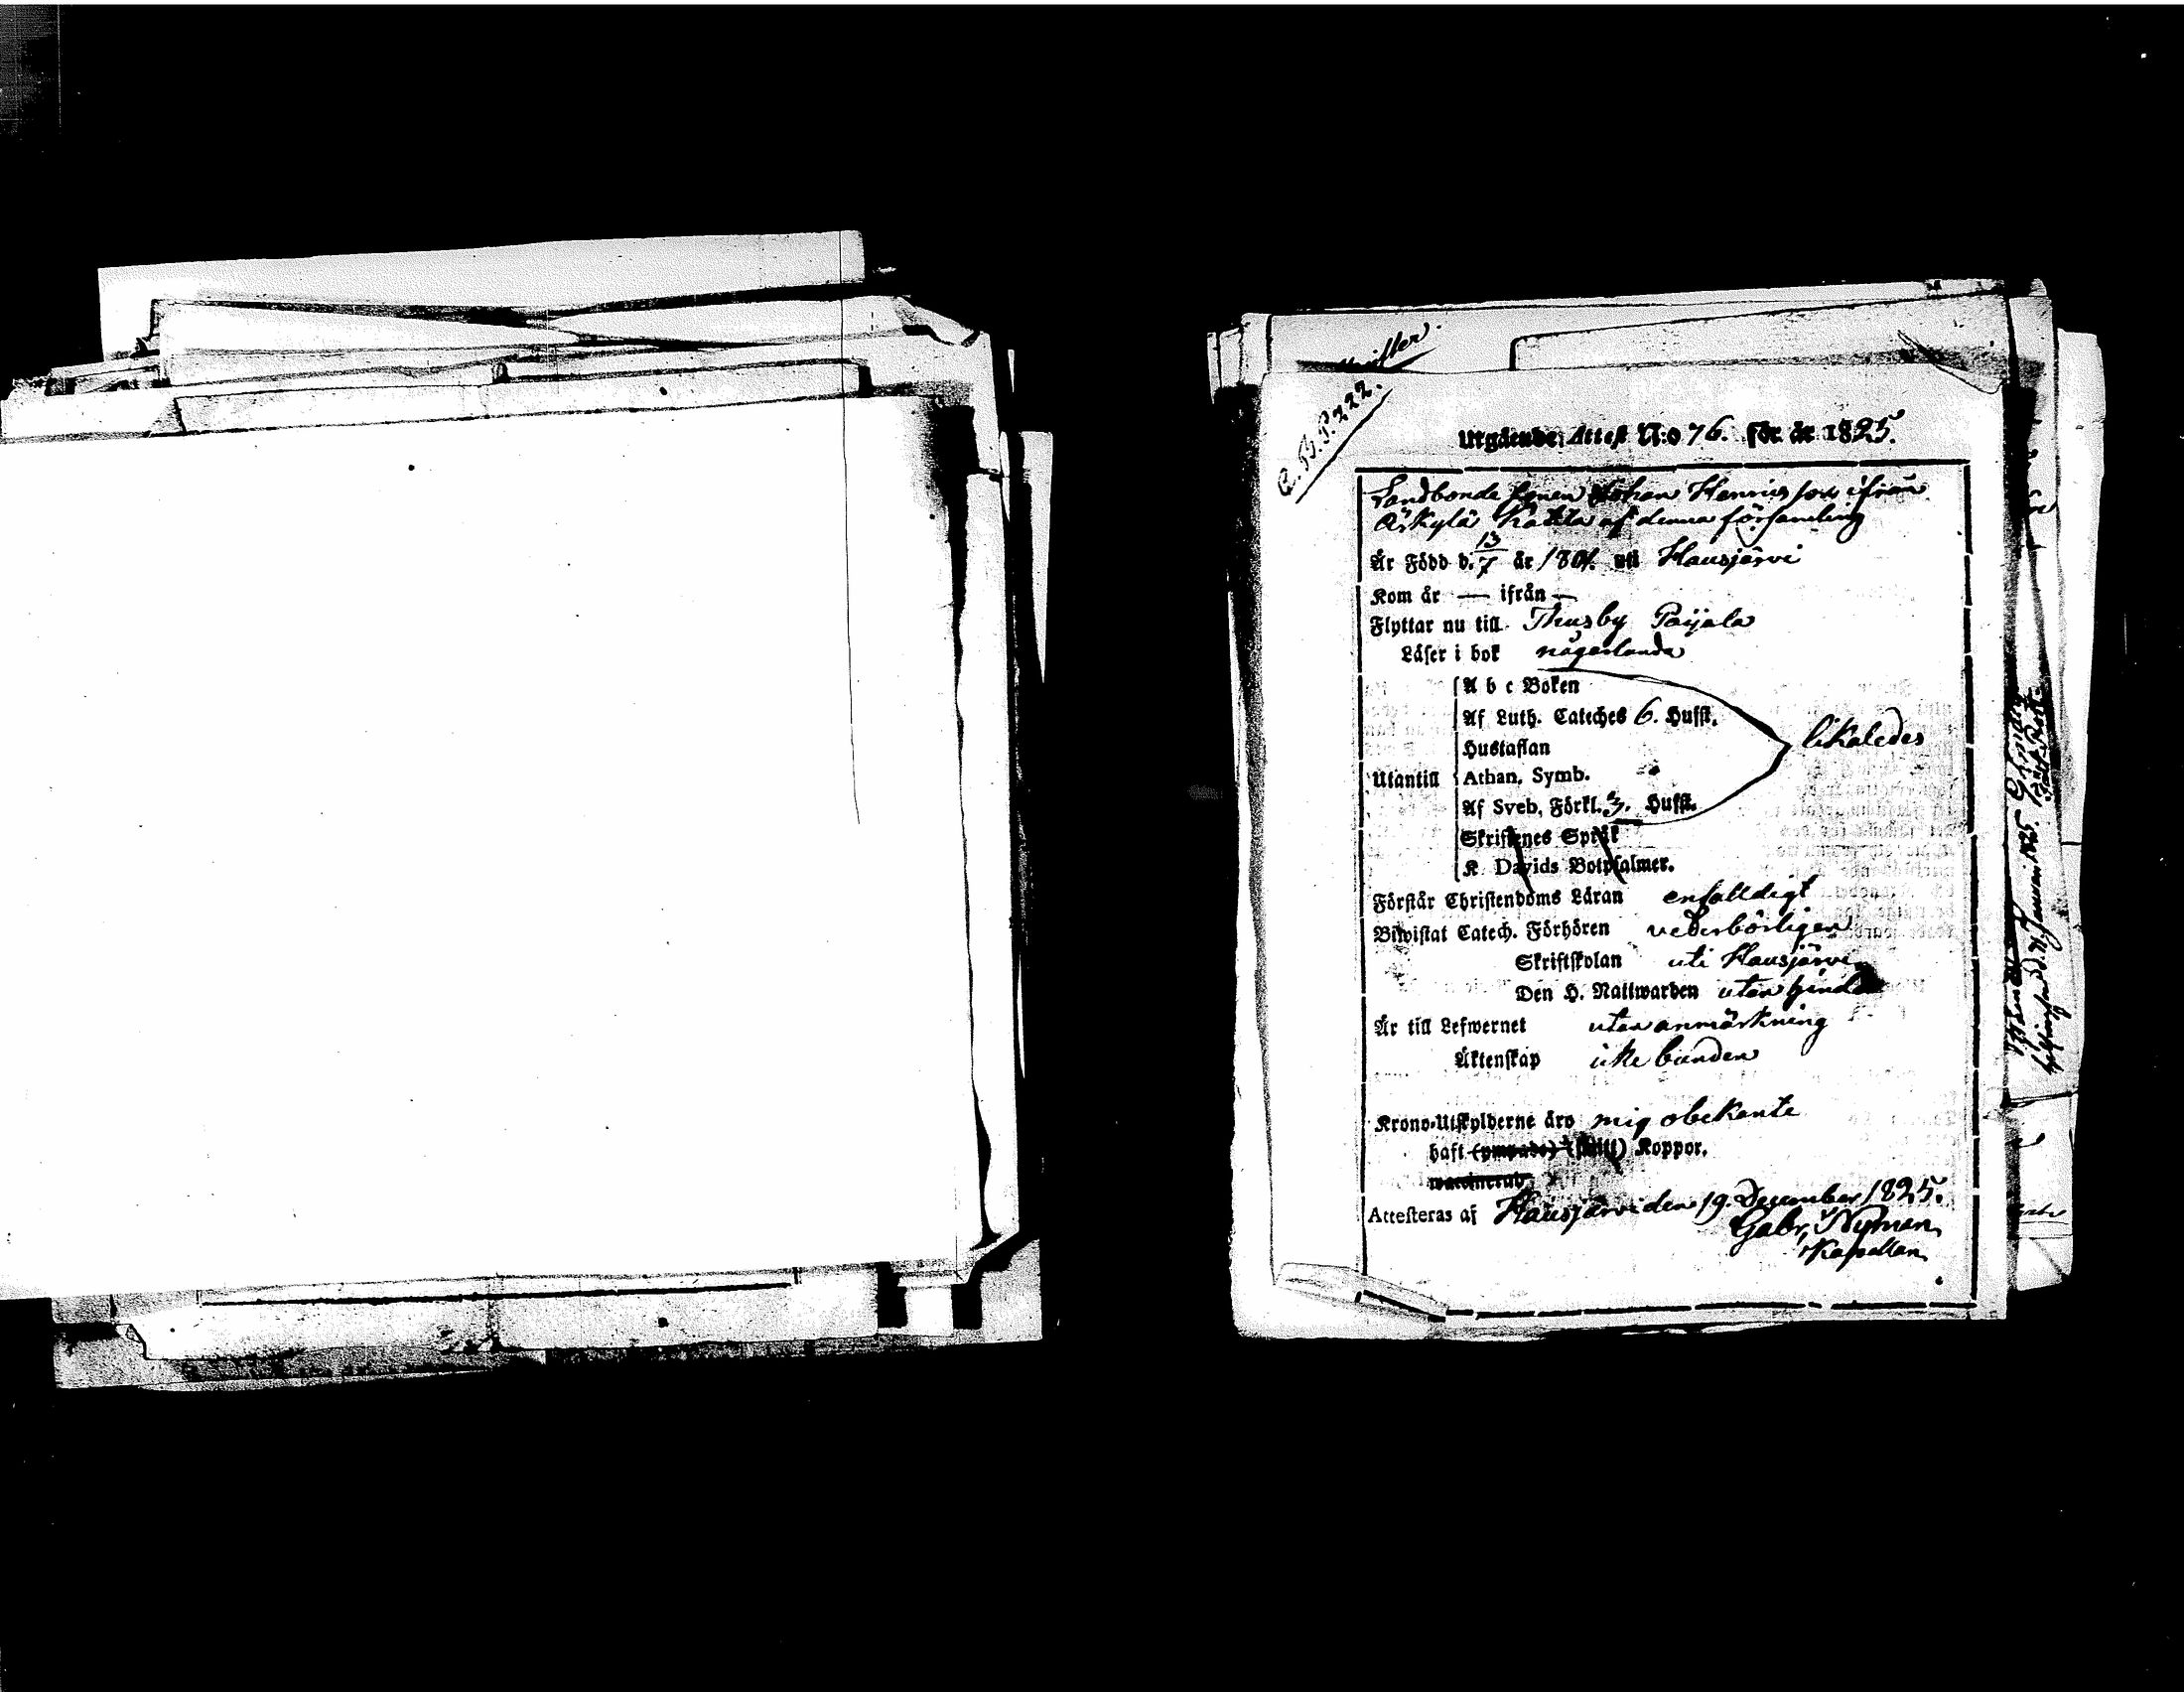 C. B. P. 222.
Utgående Attest N:o 76. för år 1825.
Landbonde sonen Johan Henricsson ifrån
Äskylä Kattila af denna församling
Är Född d. 13/7 år 1801. uti Hausjärvi
Kom år — ifrån —
Flyttar nu till Thusby Paijala
Läser i bok någorlunda
A b c Boken
Af Luth. Cateches 6. Hufst.
Hustaflan
likaledes
Utantill
Athan. Symb.
Af Sveb. Förkl. 3. Hufst.
Skriftenes Språk
K. Davids Botpsalmer.
Förstår Christendoms Läran enfalldigt
Biwistat Catech. Förhören vederbörligen
Skriftskolan uti Hausjärvi
Den H. Nattwarden utan hinder
Är till Lefwernet utan anmärkning
Äktenskap icke bunden
Krono-Utskylderne äro mig obekante
haft (ympade) Koppor.
waccinerad
Attesteras af Hausjärvi den 19. December 1825.
Gabr. Nyman
Kapellan